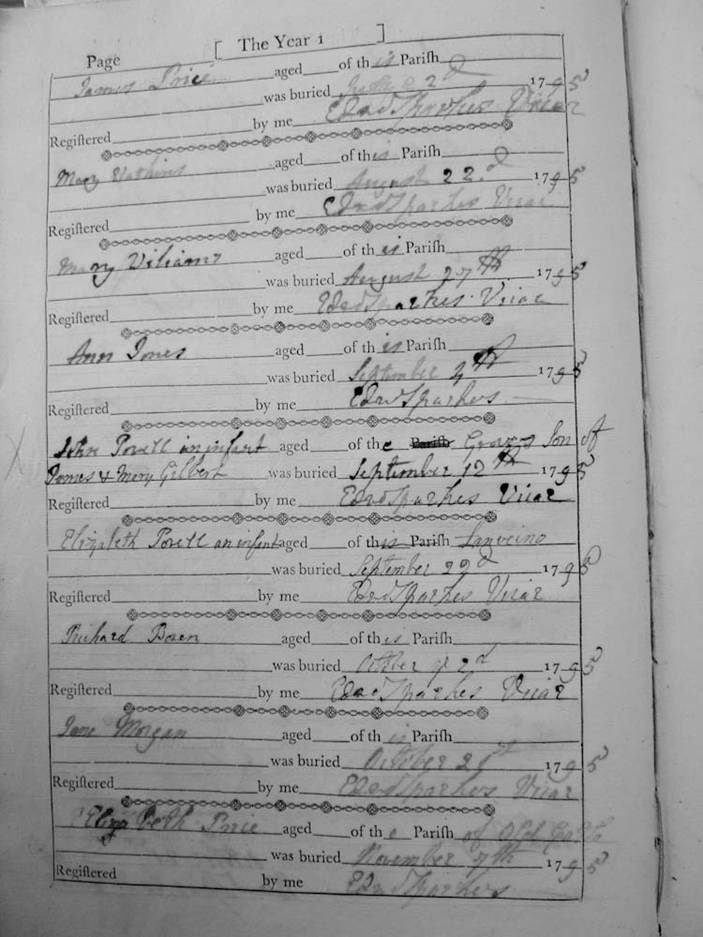 Page [ The Year 1 ]
James Price aged of this Pariſh
was buried 2d 1795
Regiſtered by me Edwd Sparkes Vicar
Mary Watkins aged of this Pariſh
was buried August 22d 1795
Regiſtered by me Edwd Sparkes Vicar
Mary Viliams aged of this Pariſh
was buried August 27th 1795
Regiſtered by me Edwd Sparkes Vicar
Ann Jones aged of this Pariſh
was buried September 4th 1795
Regiſtered by me Edwd Sparkes
X John Powell an infant aged of the Pariſh Son of
James & Mary Gilbert was buried September 12th 1795
Regiſtered by me Edwd Sparkes Vicar
Elizabeth Powell an infant aged of this Pariſh
was buried September 22d 1795
Regiſtered by me Edwd Sparkes Vicar
Richard aged of this Pariſh
was buried October 2d 1795
Regiſtered by me Edwd Sparkes Vicar
Jane Morgan aged of this Pariſh
was buried October 21st 1795
Regiſtered by me Edwd Sparkes Vicar
Elizabeth Price aged of the Pariſh of Old
was buried November 7th 1795
Regiſtered by me Edwd Sparkes